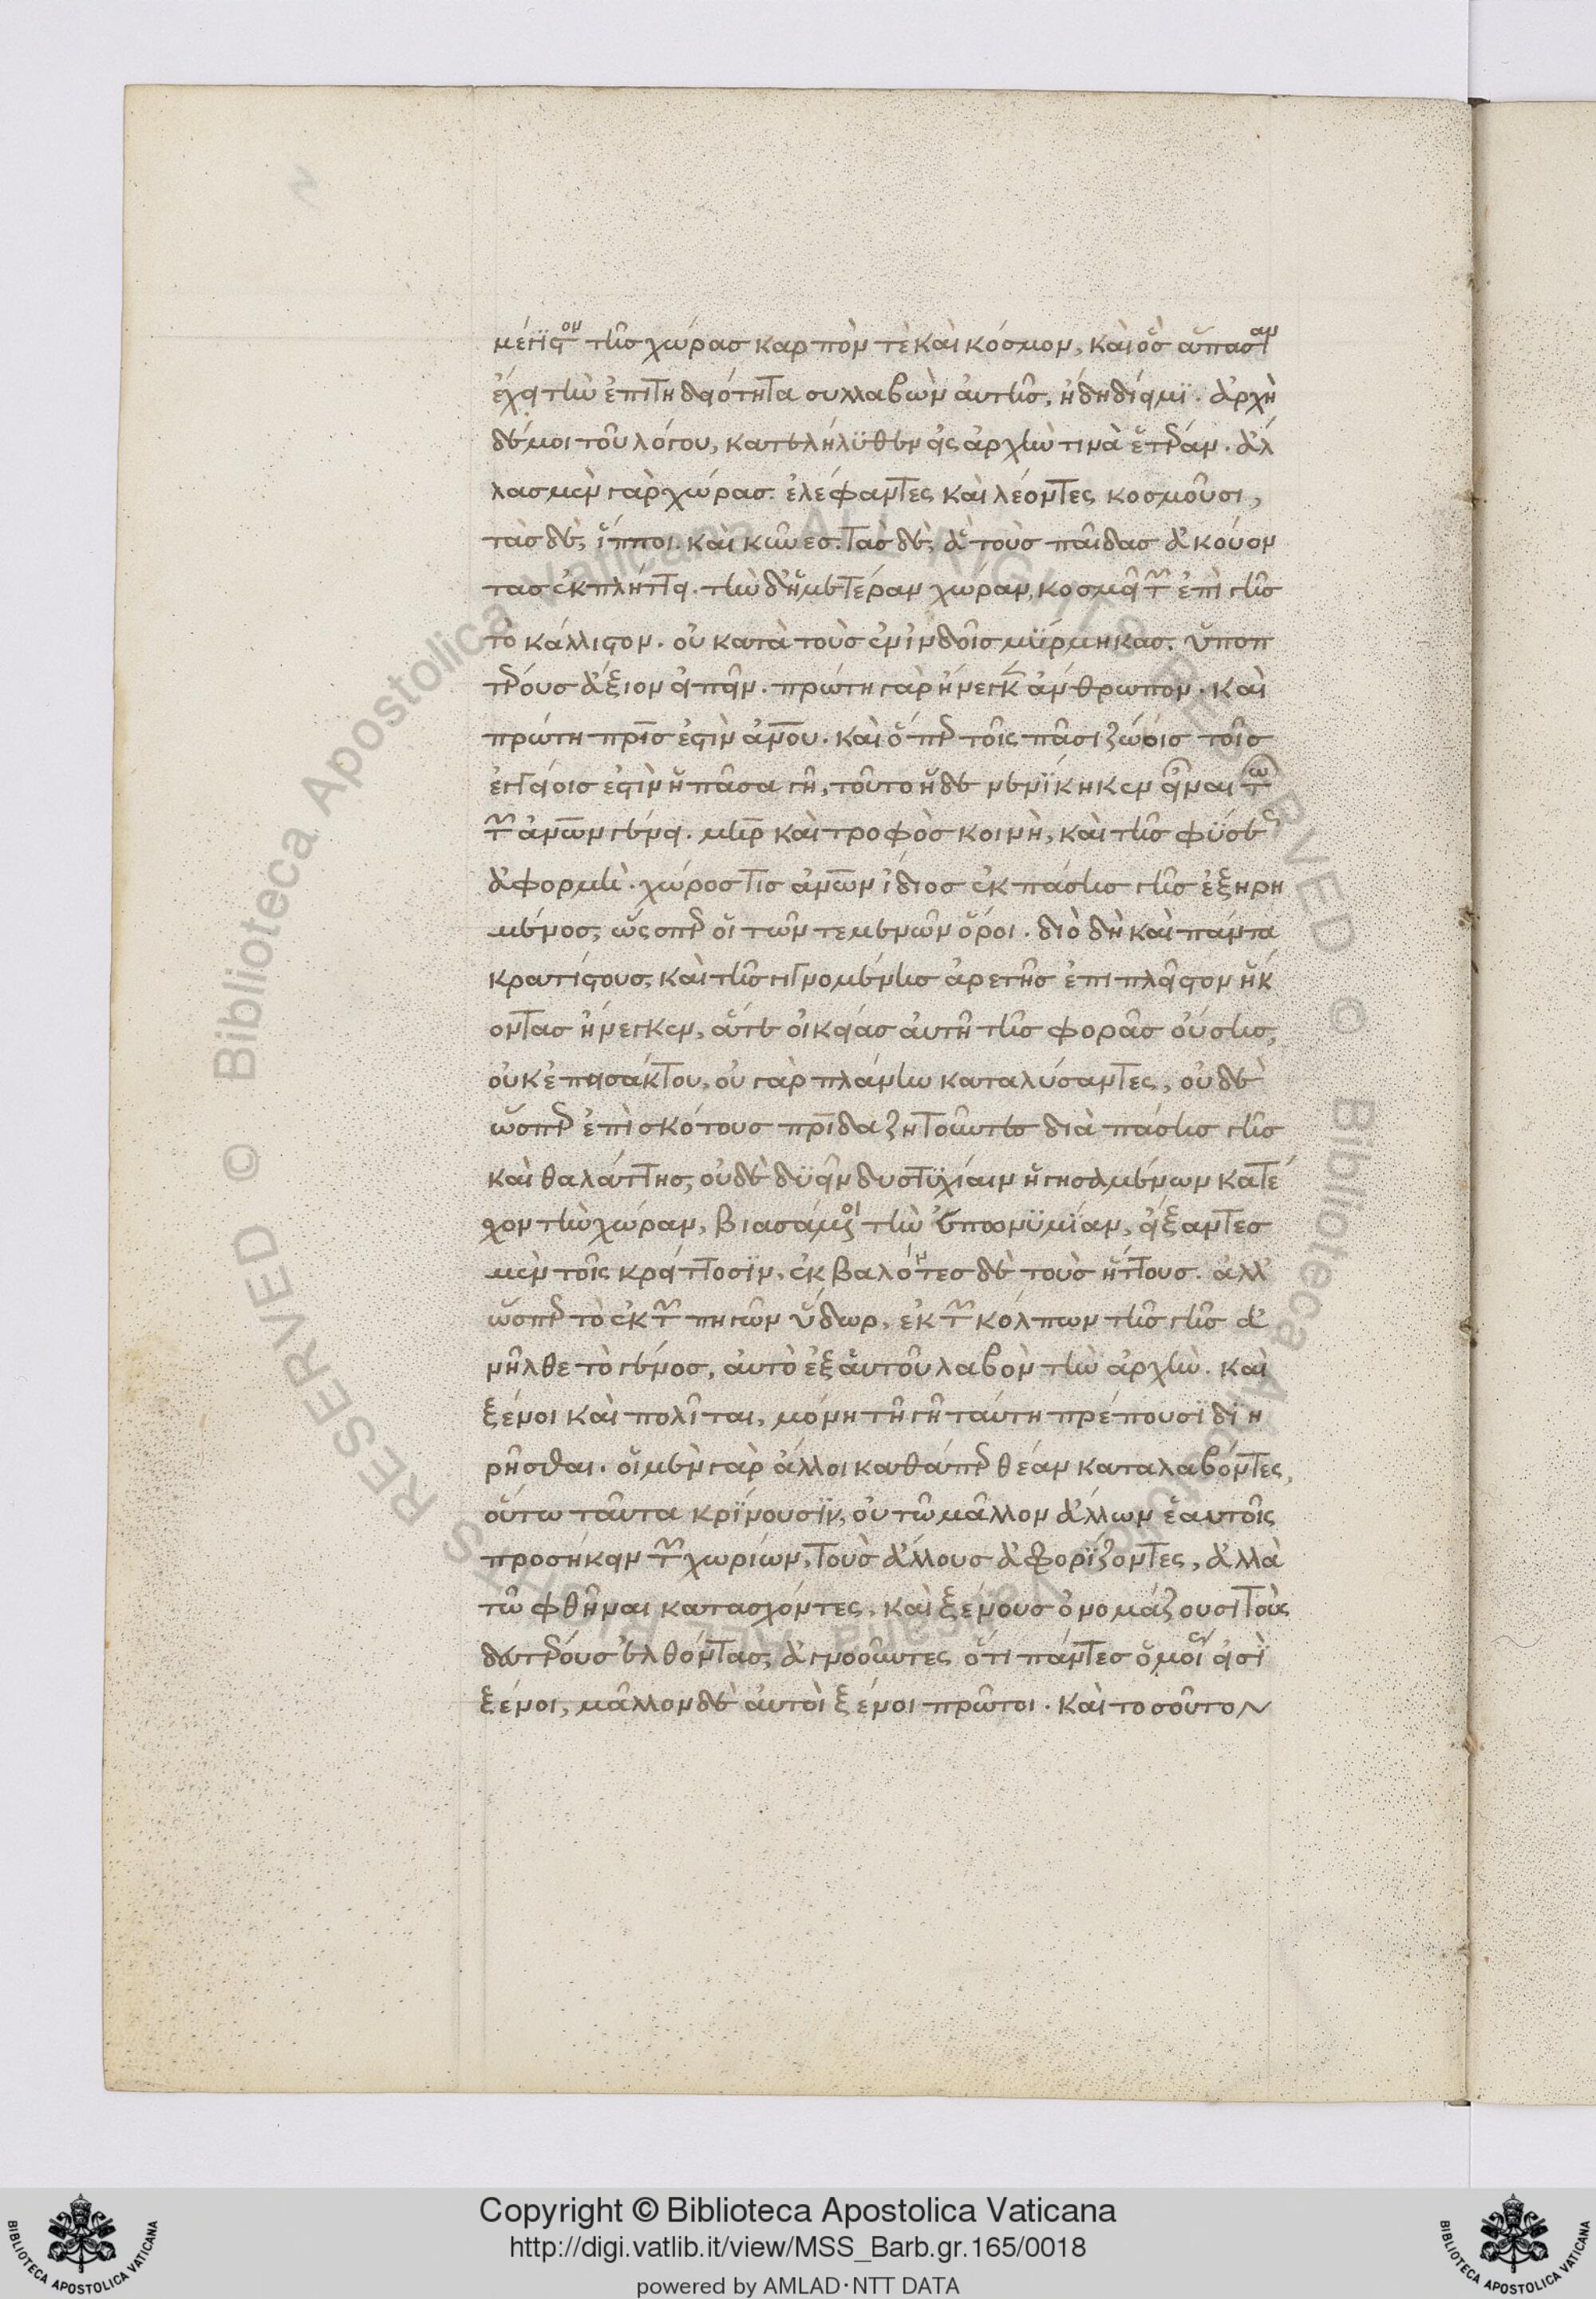 μέγιστον τῆς χώρας καρπόν τὲ καὶ κόσμον, καὶ ὃς ἅπασαν
ἔχει τὴν ἐπιτηδειότητα συλλαβὼν αὐτῆς, ἤδη δίειμι. ἀρχὴ
δέ μοι τοῦ λόγου, κατελήλυθεν εἰς ἀρχήν τινὰ ἑτέραν. ἀλ
λας μὲν γὰρ χώρας ἐλέφαντες καὶ λέοντες κοσμοῦσι,
τὰς δὲ, ἵπποι καὶ κύνες. τὰς δὲ, ἃ τοὺς παῖδας ἀκούον
τας ἐκπλήττει. τὴν δ' ἡμετέραν χώραν, κοσμεῖ τῶν ἐπὶ γῆς
τὸ κάλλιστον. οὐ κατὰ τοὺς ἐν ἰνδοῖς μύρμηκας. ὑποπ
τέρους ἄξιον εἰπεῖν. πρώτη γὰρ ἤνεγκεν ἄνθρωπον. καὶ
πρώτη πρὶς ἐστὶν ἀνου. καὶ ὅπερ τοῖς πᾶσι ζώοις τοῖς
ἐγγείοις ἐστὶν ἡ πᾶσα γῆ, τοῦτο ἥδε νενίκηκεν εἶναι τῷ
τῶν ἀνων γένει. μηρ καὶ τροφὸς κοινὴ, καὶ τῆς φύσεως
ἀφορμή. χώρος τις ἀνων ἴδιος ἐκ πάσης γῆς ἐξηρη
μένος, ὥσπερ οἱ τῶν τεμενῶν ὅροι. διὸ δὴ καὶ πάντα
κρατίστους, καὶ τῆς γιγνομένης ἀρετῆς ἐπιπλεῖστον ἥκ
οντας ἤνεγκεν, ἅτε οἰκείας αὐτῆ τῆς φορᾶς οὔσης,
οὐκ ἐπεισάκτου. οὐ γὰρ πλάνην καταλύσαντες, οὐδὲ
ὥσπερ ἐπὶ σκότους πρίδα ζητοῦντες διὰ πάσης γῆς
καὶ θαλάττης, οὐδὲ δυεῖν δυστυχίαιν ἡγησαμένων κατέ
χον τὴν χώραν, βιασάμενοι τὴν ἐπωνυμίαν, εἴξαντες
μὲν τοῖς κρείττοσιν. ἐκβαλόντες δὲ τοὺς ἥττους. ἀλλ'
ὥσπερ τὸ ἐκ τῶν πηγῶν ὕδωρ, ἐκ τῶν κόλπων τῆς γῆς ἀ
νῆλθε τὸ γένος, αὐτὸ ἐξ αὑτοῦ λαβὸν τὴν ἀρχήν. καὶ
ξένοι καὶ πολῖται, μόνη τῆ γῆ ταύτη πρέπουσι διη
ρῆσθαι. οἱ μὲν γὰρ ἄλλοι καθάπερ θέαν καταλαβόντες,
οὕτω ταῦτα κρίνουσιν, οὐ τῶ μᾶλλον ἄλλων ἑαυτοῖς
προσήκειν τῶν χωρίων, τοὺς ἄλλους ἀφορίζοντες, ἀλλὰ
τῶ φθῆναι κατασχόντες. καὶ ξένους ὀνομάζουσι τοὺς
δευτέρους ἐλθόντας, ἀγνοοῦντες ὅτι πάντες ὅμοιοί εἰσὶ
ξένοι, μᾶλλον δὲ αὐτοὶ ξένοι πρῶτοι. καὶ τοσοῦτον
Copyright © Biblioteca Apostolica Vaticana
http://digi.vatlib.it/view/MSS_Barb.gr.165/0018
powered by AMLAD·NTT DATA